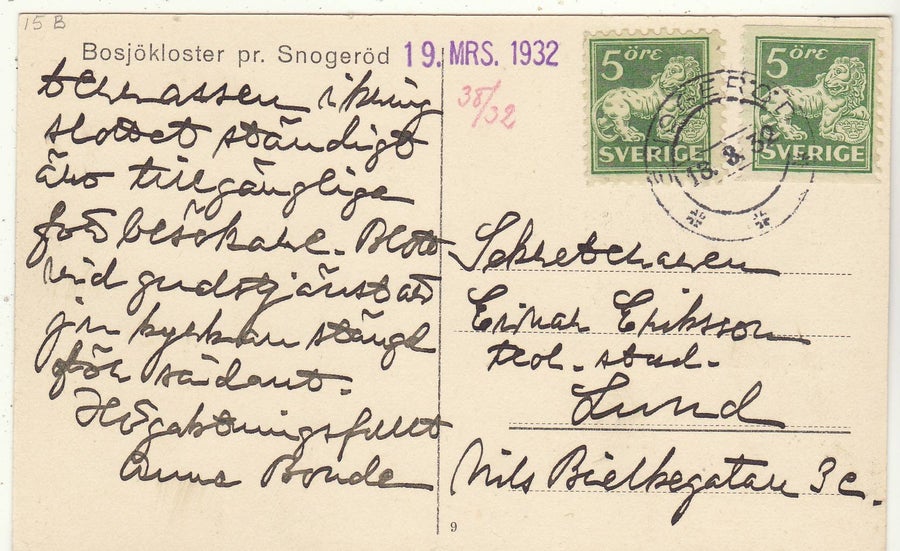 15 B
Bosjökloster pr. Snogeröd
19. MRS. 1932
38/32
5 öre
SVERIGE
5 öre
SVERIGE
18. 3. 32
terrassen ikring
slottet ständigt
äro tillgängliga
för besökare. Blott
vid gudstjänst är
kyrkan stängd
för sådant.
Högaktningsfullt
Anna Bonde
Sekreteraren
Einar Eriksson
teol. stud.
Lund
Nils Bielkegatan 3 c.
9